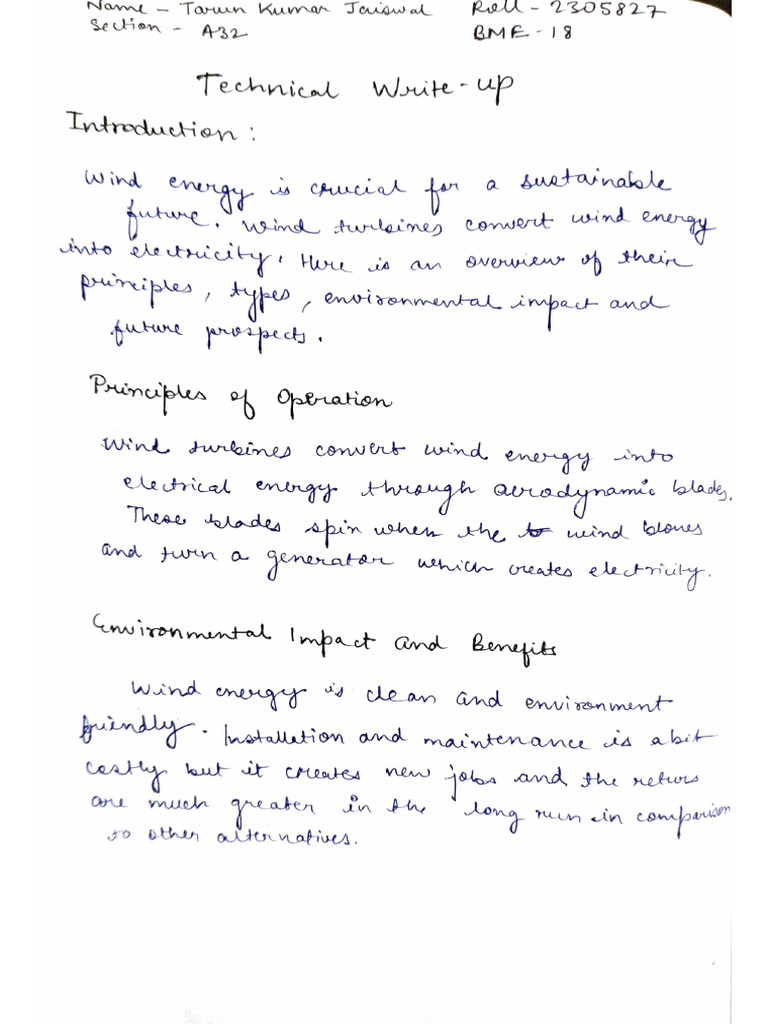 Name - Tarun Kumar Jaiswal Roll - 2305827
Section - A32 BME - 18
Technical Write-up
Introduction :
Wind energy is crucial for a sustainable
future. Wind turbines convert wind energy
into electricity. Here is an overview of their
principles, types, environmental impact and
future prospects.
Principles of Operation
Wind turbines convert wind energy into
electrical energy through aerodynamic blades.
These blades spin when the wind blows
and turn a generator which creates electricity.
Environmental Impact and Benefits
Wind energy is clean and environment
friendly. Installation and maintenance is a bit
costly but it creates new jobs and the returs
are much greater in the long run in comparison
to other alternatives.